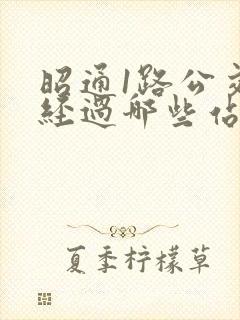 昭通1路公交
经过哪些佔
夏季柠檬草